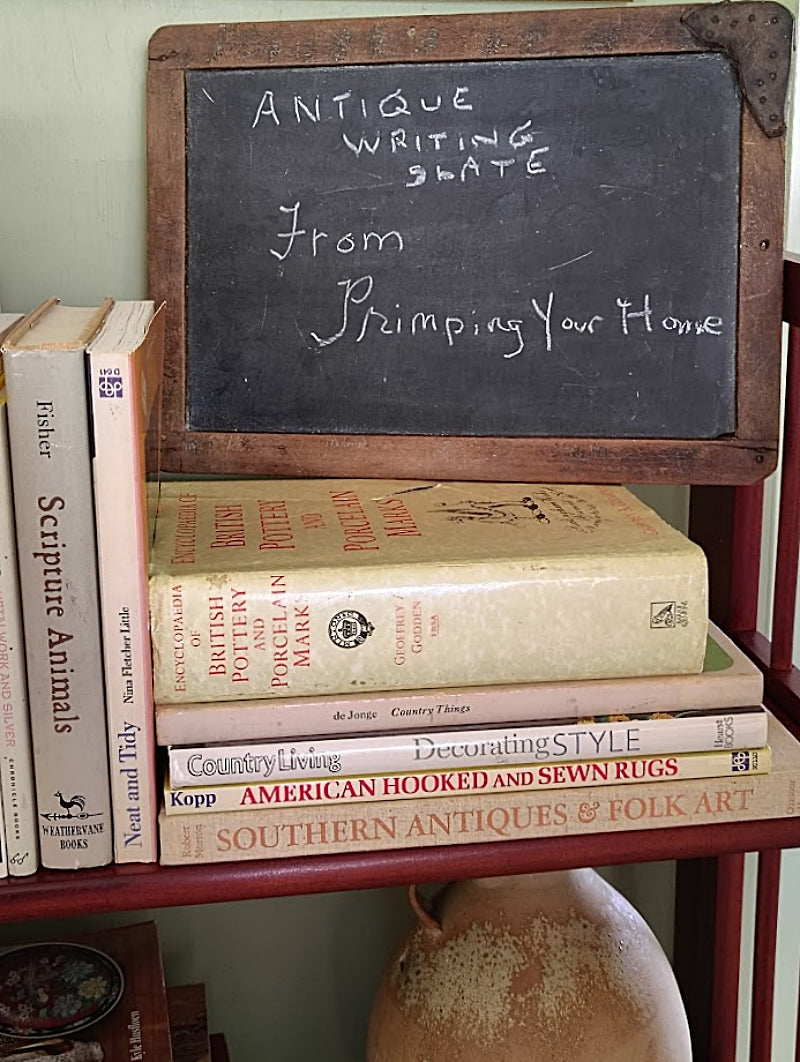 ANTIQUE
WRITING
SLATE
From
Primping Your Home
Fisher
Scripture Animals
WEATHERVANE
BOOKS
D 641
Neat and Tidy Nina Fletcher Little
WORK AND SILVER
CHRONICLE BOOKS
ENCYCLOPAEDIA OF
BRITISH
POTTERY
AND
PORCELAIN
MARKS
ENCYCLOPAEDIA
OF
BRITISH
POTTERY
AND
PORCELAIN
MARKS
GEOFFREY A
GODDEN
de Jonge Country Things
CountryLiving DecoratingSTYLE
Hearst
BOOKS
Kopp AMERICAN HOOKED AND SEWN RUGS
Robert
Morton
SOUTHERN ANTIQUES & FOLK ART